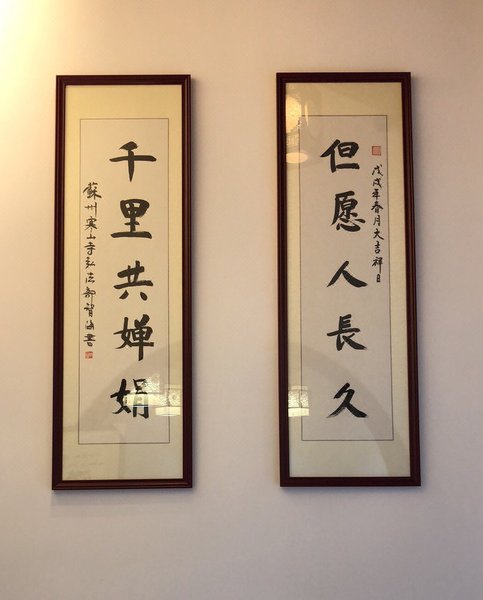 但愿人長久
戊戌年春月大吉祥日
千里共婵娟
蘇州寒山寺弘法部智海書